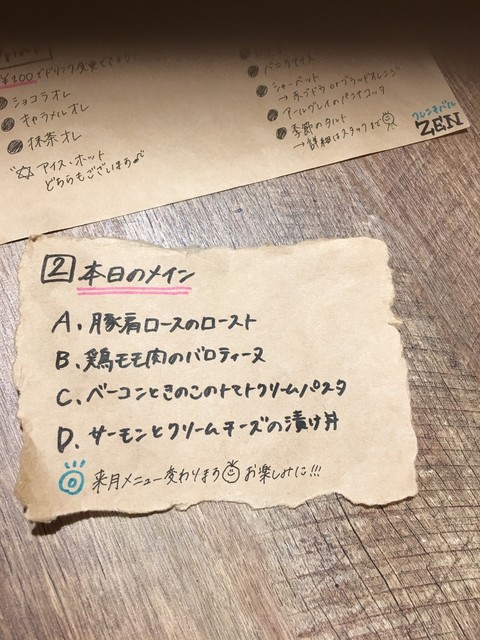 ¥100でドリンク変更できます!
ショコラオレ
キャラメルオレ
抹茶オレ
アイス・ホット
どちらもございます
バニラアイス
シャーベット
→赤ブドウ orブラッドオレンジ
アールグレイのパンナコッタ
季節のタルト
→詳細はスタッフまで
フレンチバル
ZEN
2 本日のメイン
A. 豚肩ロースのロースト
B. 鶏モモ肉のバロティーヌ
C. ベーコンときのこのトマトクリームパスタ
D. サーモンとクリームチーズの漬け丼
来月メニュー変わります お楽しみに!!!